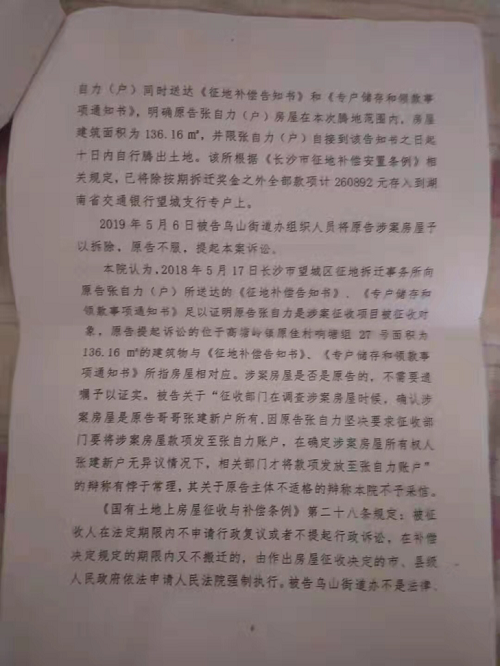 自力（户）同时送达《征地补偿告知书》和《专户储存和领款事
项通知书》，明确原告张自力（户）房屋在本次腾地范围内，房屋
建筑面积为 136.16 ㎡，并限张自力（户）自接到该告知书之日起
十日内自行腾出土地。该所根据《长沙市征地补偿安置条例》相
关规定，已将除按期拆迁奖金之外全部款项计 260892 元存入到湖
南省交通银行望城支行专户上。
2019 年 5 月 6 日被告乌山街道办组织人员将原告涉案房屋予
以拆除，原告不服，提起本案诉讼。
本院认为，2018 年 5 月 17 日长沙市望城区征地拆迁事务所向
原告张自力（户）所送达的《征地补偿告知书》、《专户储存和
领款事项通知书》足以证明原告张自力是涉案征收项目被征收对
象，原告提起诉讼的位于高塘岭镇原佳村响塘组 27 号面积为
136.16 ㎡的建筑物与《征地补偿告知书》、《专户储存和领款事
项通知书》所指房屋相对应。涉案房屋是否是原告的，不需要遗
嘱予以证实。被告关于“征收部门在调查涉案房屋时候，确认涉
案房屋是原告哥哥张建新户所有，因原告张自力坚决要求征收部
门要将涉案房屋款项发至张自力账户，在确定涉案房屋所有权人
张建新户无异议情况下，相关部门才将款项发放至张自力账户”
的辩称有悖于常理，其关于原告主体不适格的辩称本院不予采信。
《国有土地上房屋征收与补偿条例》第二十八条规定：被征
收人在法定期限内不申请行政复议或者不提起行政诉讼，在补偿
决定规定的期限内又不搬迁的，由作出房屋征收决定的市、县级
人民政府依法申请人民法院强制执行。被告乌山街道办不是法律、